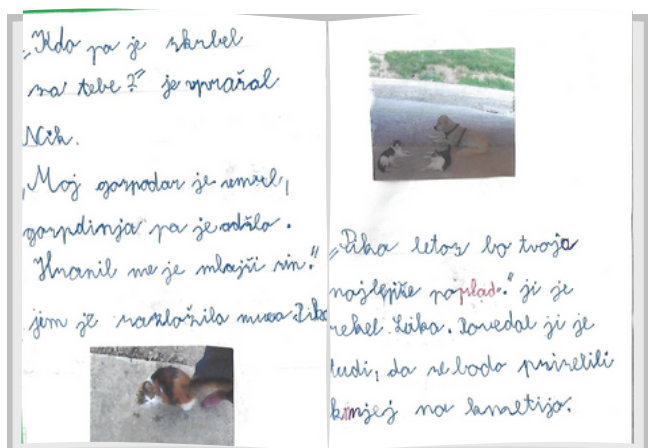 „Kdo pa je skrbel
za tebe?" je vprašal
Nik.
„Moj gospodar je umrl,
gospdinja pa je odšla.
Hranil me je mlajši sin."
jim je razložila muca Pika
„Pika letos bo tvoja
najlepše poplad." ji je
rekel Luka. Povedal ji je
tudi, da se bodo priselili
k njej na kmetijo.